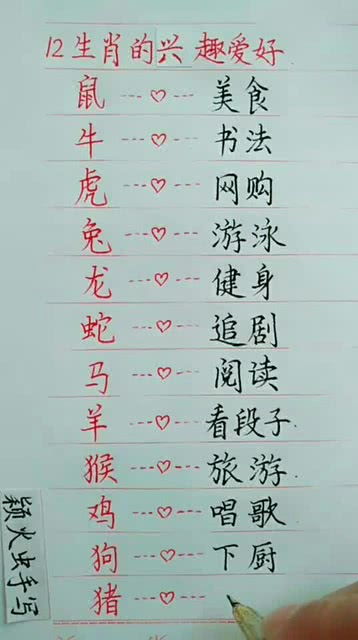 12生肖的兴趣爱好
鼠---♡---美食
牛---♡---书法
虎---♡---网购
兔---♡---游泳
龙---♡---健身
蛇---♡---追剧
马---♡---阅读
羊---♡---看段子.
猴---♡---旅游.
鸡---♡---唱歌
狗---♡---下厨
猪---♡---
颖火虫手写